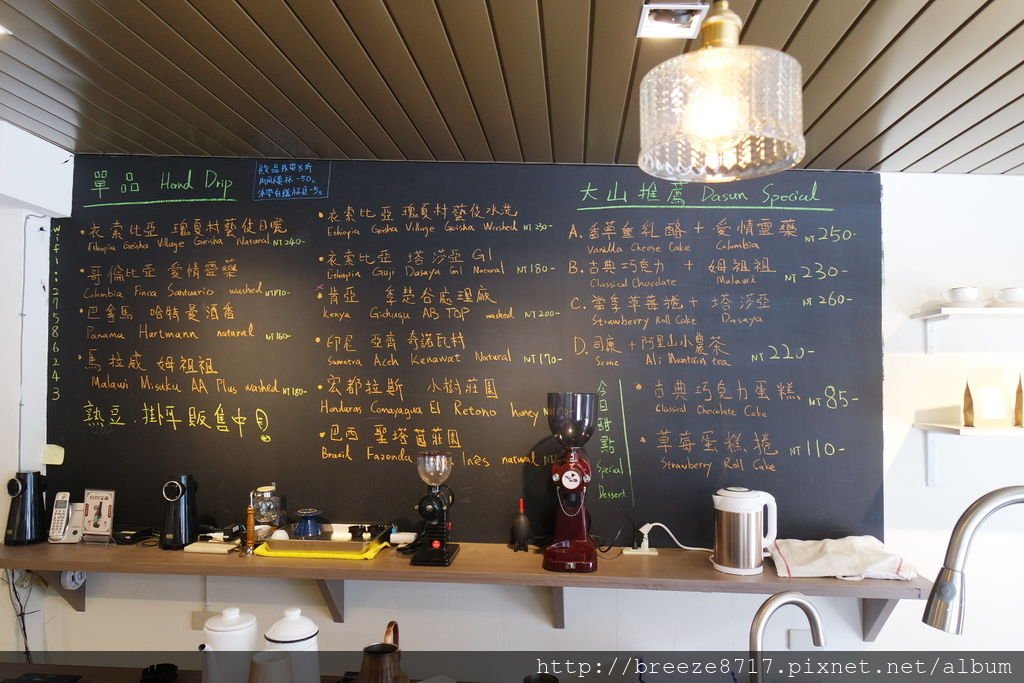 單品 Hand Drip
飲品外帶8折
-50
-5
wifi:27586243
衣索比亞 瑰夏村藝伎日曬
Ethiopia Geisha Village Geisha Natural NT240-
哥倫比亞 愛情靈藥
Colombia Finca Santuario washed NT190-
巴拿馬 哈特曼酒香
Panama Hartmann natural NT160-
馬拉威 姆祖祖
Malawi Misuku AA Plus washed NT180-
熟豆.掛耳販售中
衣索比亞 瑰夏村藝伎水洗
Ethiopia Geisha Village Geisha Washed NT230-
衣索比亞 塔莎亞 G1
Ethiopia Guji Dasaya G1 Natural NT180-
肯亞 季楚谷處理廠
Kenya Gichugu AB TOP washed NT200-
印尼 亞齊 奇諾瓦村
Sumatra Aceh Kenawat Natural NT170-
宏都拉斯 小樹莊園
Honduras Comayagua El Retono honey
巴西 聖塔茵莊園
Brazil Fazenda Inês natural
大山推薦 Dasun Special
A. 香草重乳酪 + 愛情靈藥 NT250-
Vanilla Cheese Cake Colombia
B. 古典巧克力 + 姆祖祖 NT230-
Classical Chocolate Malawi
C. 當季草莓捲 + 塔莎亞 NT260-
Strawberry Roll Cake Dasaya
D. 司康 + 阿里山小農茶 NT220-
Scone Ali Mountain tea
今日甜點
Special
Dessert
古典巧克力蛋糕 NT85-
Classical Chocolate Cake
草莓蛋糕捲 NT110-
Strawberry Roll Cake
http://breeze8717.pixnet.net/album